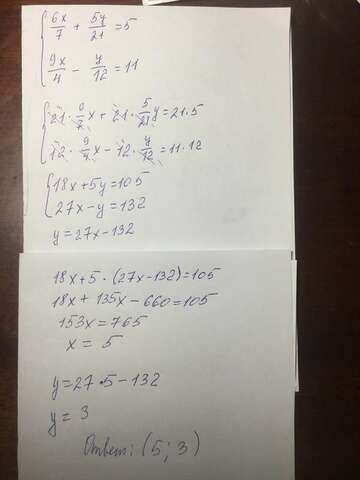 6x/7 + 5y/21 = 5
9x/4 - y/12 = 11
21 · 6/7 x + 21 · 5/21 y = 21.5
12 · 9/4 x - 12 · y/12 = 11·12
18x+5y=105
27x-y=132
y=27x-132
18x+5·(27x-132)=105
18x+135x-660=105
153x=765
x = 5
y=27·5-132
y= 3
Ответ: (5; 3)